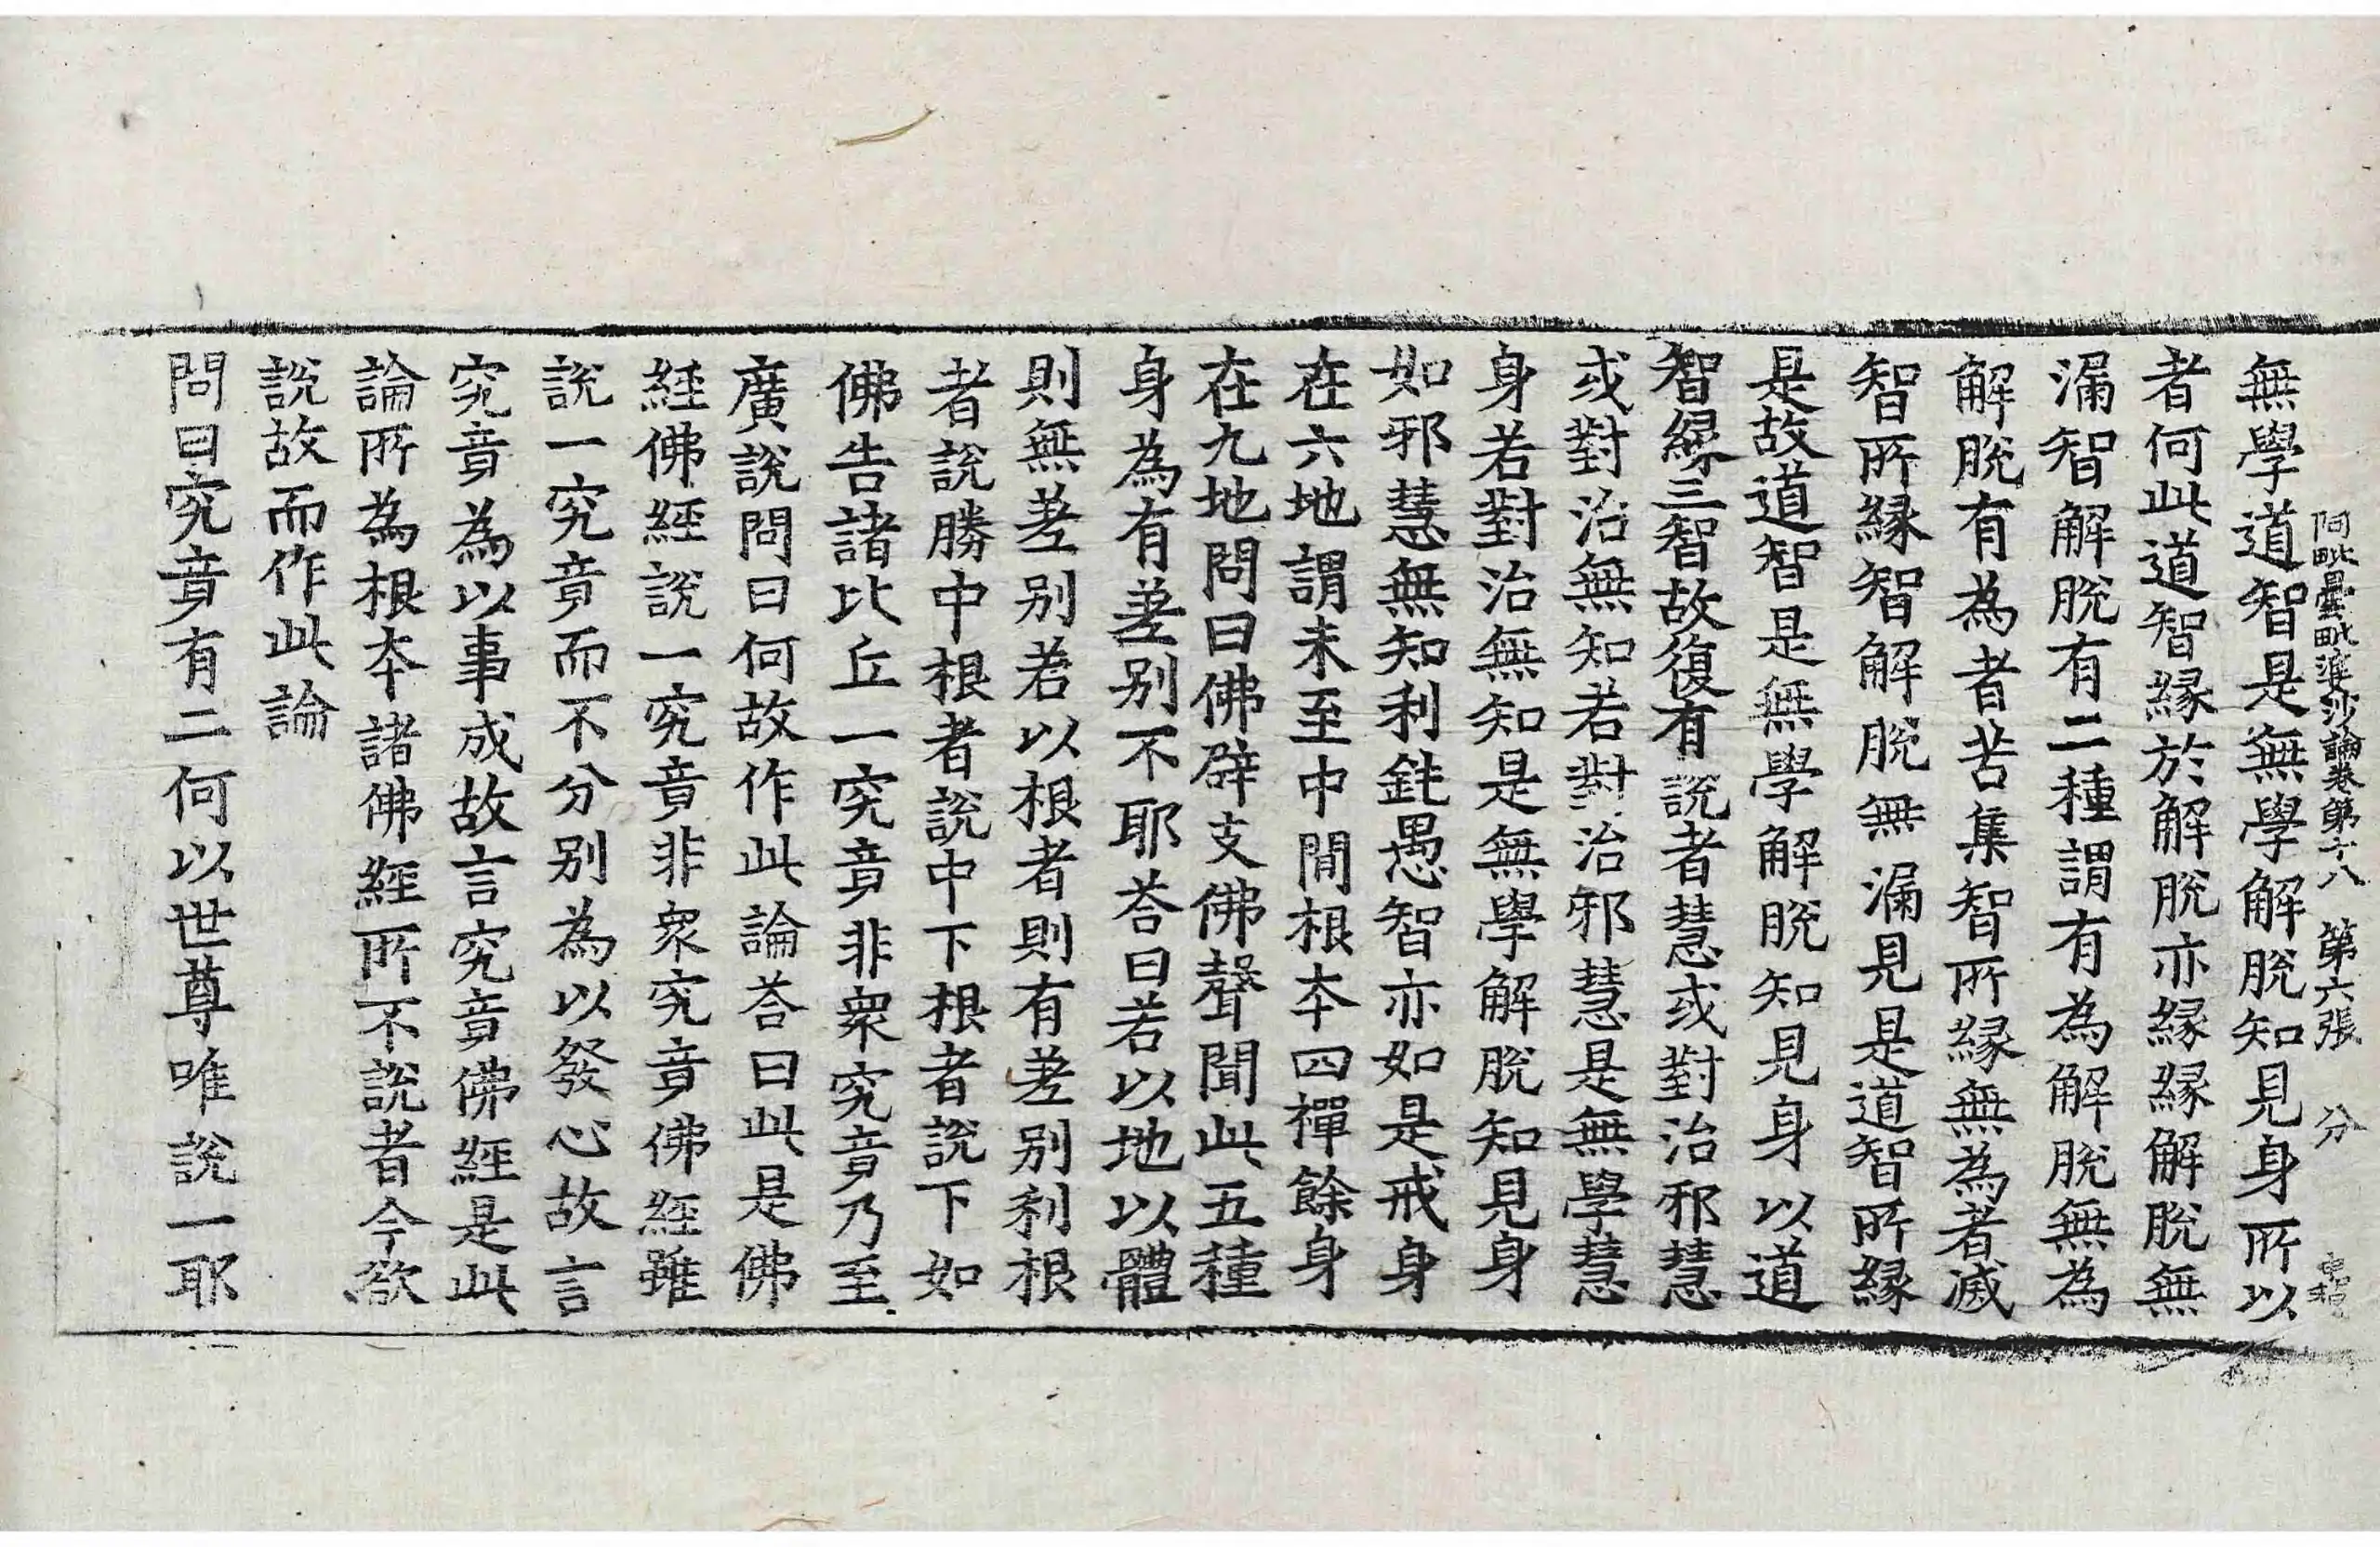 阿毗曇毗婆沙論卷第十八　第六張　分
無學道智是無學解脫知見身所以
者何此道智緣於解脫亦緣緣解脫無
漏智解脫有二種謂有為解脫無為
解脫有為者苦集智所緣無為者滅
智所緣智解脫無漏見是道智所緣
是故道智是無學解脫知見身以道
智緣三智故復有說者慧或對治邪慧
或對治無知若對治邪慧是無學慧
身若對治無知是無學解脫知見身
如邪慧無知利鈍愚智亦如是戒身
在六地謂未至中間根本四禪餘身
在九地問曰佛辟支佛聲聞此五種
身為有差別不耶荅曰若以地以體
則無差別若以根者則有差別利根
者說勝中根者說中下根者說下如
佛告諸比丘一究竟非衆究竟乃至
廣說問曰何故作此論荅曰此是佛
經佛經說一究竟非衆究竟佛經雖
說一究竟而不分別為以發心故言
究竟為以事成故言究竟佛經是此
論所為根本諸佛經所不說者今欲
說故而作此論
問曰究竟有二何以世尊唯說一耶